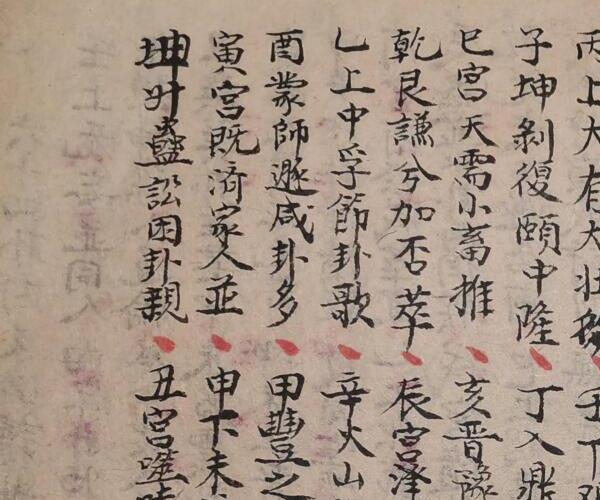 丙上大有大壮 壬下
子坤剝復頤中隆 丁入鼎
巳宮天需小畜推 亥晋豫
乾艮謙兮加否萃 辰宮澤
乙上中孚節卦歌 辛火山
酉蒙師遯咸卦多 甲豐之
寅宮既済家人並 申下未
坤外蠱訟困卦親 丑宮噬